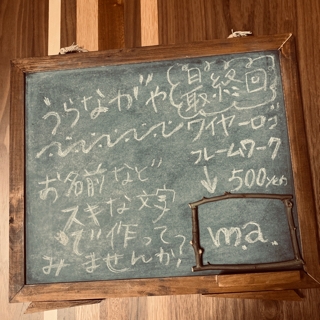 うらながや
最終回
ワイヤーロゴ
フレームワーク
↓ 500yen
お名前など
スキな文字
で作って
みませんか?
m.a.